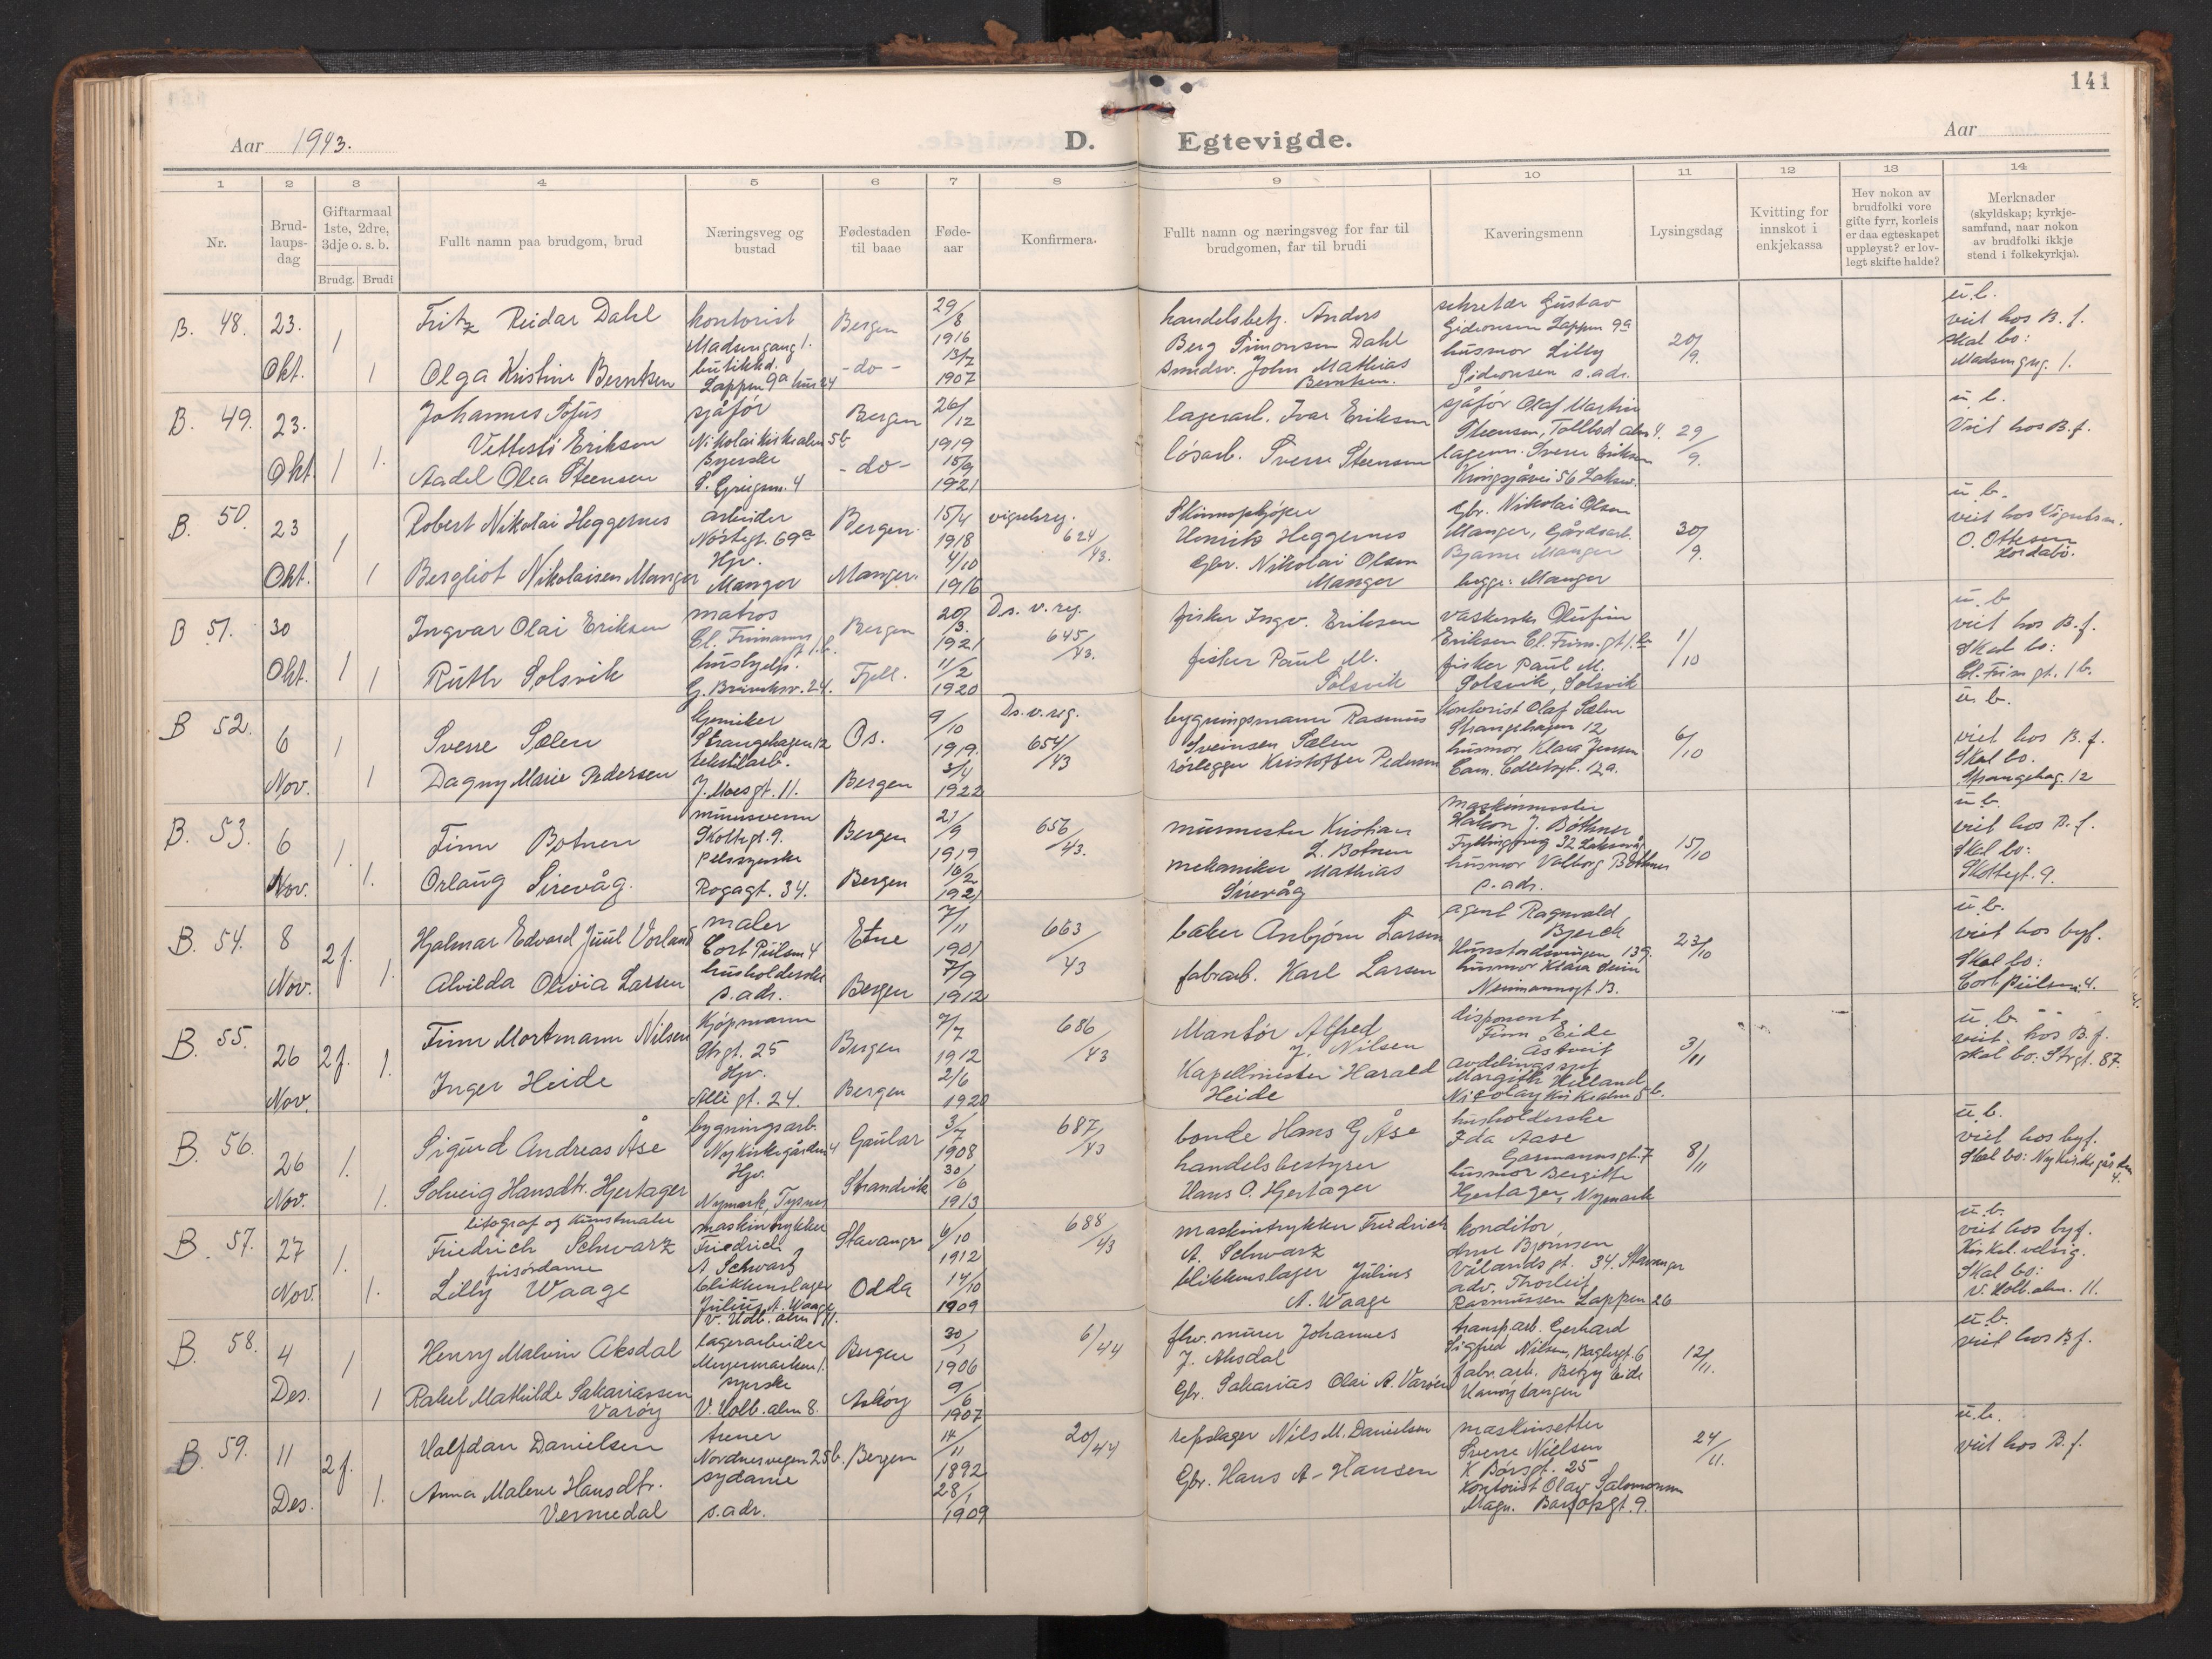 141
Aar 1943.
D. Egtevigde.
Aar
1 2 3 4 5 6 7 8 9 10 11 12 13 14
Nr.
Brud-
laups-
dag
Giftarmaal
1ste, 2dre,
3dje o. s. b.
Brudg. Brudi
Fullt namn paa brudgom, brud
Næringsveg og
bustad
Fødestaden
til baae
Føde-
aar
Konfirmera.
Fullt namn og næringsveg for far til
brudgomen, far til brudi
Kaveringsmenn
Lysingsdag
Kvitting for
innskot i
enkjekassa
Hev nokon av
brudfolki vore
gifte fyrr, korleis
er daa egteskapet
uppløyst? er lov-
legt skifte halde?
Merknader
(skyldskap; kyrkje-
samfund, naar nokon
av brudfolki ikkje
stend i folkekyrkja).
B. 48. 23. Okt. 1 1
Fritz Reidar Dahl
Olga Kristine Berntsen
kontorist
Madsengang 1.
butikkd.
Lappen 9a hus 24
Bergen
-do-
29/8
1916
13/7
1907
handelsbetj. Anders
Berg Simonsen Dahl
smedsv. John Mathias
Berntsen.
sekretær Gustav
Gideonsen Lappen 9a
husmor Lilly
Gideonsen s. adr.
20/9.
u. b.
viet hos B. f.
skal bo:
Madsengng. 1.
B. 49. 23. Okt. 1 1.
Johannes Sofus
Vettesti Eriksen
Aadel Olea Steensen
sjåfør
Nikolaikirkealm 5b
Syerske
S. Griegsm. 4
Bergen
-do-
26/12
1919
15/9
1921
lagerarb. Ivar Eriksen
løsarb. Sverre Steensen
sjåfør Olaf Martin
Steensen, Tollbod alm 4.
lagerm. Sverre Eriksen
Kringsjåvei 56 Laksev.
29/9.
u. b.
Viet hos B. f.
B. 50. 23 Okt. 1 1
Robert Nikolai Heggernes
Bergliot Nikolaisen Manger
arbeider
Nøstegt. 69a
Hjv.
Manger
Bergen
Manger.
15/4
1918
4/10
1916
624/43.
Henrik Heggernes
Gbr. Nikolai Olsen
Manger
Gbr. Nikolai Olsen
Manger, Gårdsarb.
Bjarne Manger
begge: Manger
30/9.
u. b.
O. Ottesen
Hordabø.
B 51. 30 Okt. 1 1
Ingvar Olai Eriksen
Ruth Solsvik
matros
Cl. Frimanns
gt 1. b.
hushjelp.
Bergen
Fjell.
20/3.
1921
11/2
1920
Ds. v. reg.
645/43.
fisker Ingv. Eriksen
fisker Paul M.
Solsvik
vaskerske Olufine
Eriksen Cl. Frim. gt 1. b
fisker Paul M.
Solsvik, Solsvik
1/10
u. b
viet hos B. f.
Skal bo:
Cl. Frim gt. 1 b.
B 52. 6 Nov. 1 1
Sverre Sælen
Dagny Marie Pedersen
kjemiker
Strangehagen 12
tekstilarb.
J. Moesgt. 11.
Os.
Bergen
9/10
1919.
3/4
1922
Ds. v. reg.
654/43
bygningsmann Rasmus
Sveinsen Sælen
rørlegger Kristoffer Pedersen
Kontorist Olaf Sælen
Strangehagen 12
husmor Klara Jensen
6/10
u. b.
viet hos B. f.
Skal bo.
Strangehag. 12
B. 53. 6 Nov. 1. 1.
Finn Botnen
Orlaug Sirevåg.
murersvenn
Skottegt. 9.
Pelssyerske
Rogagt. 34.
Bergen
Bergen
21/9
1919
16/2
1921
656/43.
murmester Kristian
L. Botnen
mekaniker Mathias
Sirevåg
maskinmester
Håkon J. Bøthner
Fyllingsveg 32 Laksevåg
husmor Valborg Bøthner
s. adr.
15/10
u. b.
viet hos B. f.
Skal bo:
Skottegt. 9.
B. 54. 8 Nov. 2 f. 1.
Hjalmar Edvard Juul Vorland
Alvilda Olivia Larsen
maler
Cort Piilsm 4
husholderske
s. adr.
Etne
Bergen
7/11
1901
7/9
1912
663/43
baker Anbjørn Larsen
fabrarb. Karl Larsen
agent Ragnvald
Bjerck
139.
husmor Klara
Neumannsgt. 13.
23/10
u. b.
viet hos byf.
Skal bo:
Cort Piilsm. 4.
B. 55. 26 Nov. 2 f. 1.
Finn Mortmann Nilsen
Inger Heide
Kjøpmann
Strgt. 25
Hjv.
Allégt. 24.
Bergen
Bergen
7/7
1912
2/6
1920
686/43
Mantør Alfred
J. Nilsen
Kapellmester Harald
Heide
disponent
Finn Eide
Åstveit
avdelingssjef
Margith Helland
Nicolaykirkealm 5 b.
3/11
u. b.
viet hos B. f.
skal bo: Strgt. 87.
B. 56. 26 Nov. 1. 1.
Sigurd Andreas Åse
Solveig Hansdtr. Hjertager
bygningsarb.
Nykirkegården 4
Hjv.
Nymark, Tysnes
Gaular
Strandvik
3/7
1908
30/6
1913
687/43
bonde Hans G Åse
handelsbestyrer
Hans O. Hjertager
husholderske
Ida Aase
Garmannsgt. 7
husmor Bergitte
Hjertager, Nymark
8/11
u. b.
viet hos byf.
Skal bo: Nykirkegården
4.
B. 57. 27 Nov. 1. 1.
litograf og kunstmaler
Friedrich Schwarz
frisørdame
Lilly Waage
maskintrykker
Friedrich
A Schwarz
blikkenslager
Julius A. Waage
V. Holb. alm 11.
Stavanger
Odda
6/10
1912
14/10
1909
688/43
maskintrykker Friedrich
A. Schwarz
blikkenslager Julius
A. Waage
konditor
Arne Bjørnsen
Vålandsgt. 34. Stavanger
adv. Thorleif
Rasmussen Lappen 26
u. b.
viet hos byf.
Kirkel. velsig.
Skal bo:
V. Holb. alm. 11.
B. 58. 4 Des. 1 1
Henry Malvin Aksdal
Rakel Mathilde Sakariassen
Varøy
lagerarbeider
Meyermarken 1.
syerske
V. Holb. alm 8.
Bergen
Askøy
30/1
1906
9/6
1907
6/44
fhv. murer Johannes
J. Aksdal
Gbr. Sakarias Olai A. Varøen
transp. arb. Gerhard
Sigfred Nilsen, Baglergt. 6
fabr. arb. Betzy Eide
12/11.
u. b.
viet hos B. f.
B. 59. 11 Des. 2 f. 1.
Halfdan Danielsen
Anna Malene Hansdtr.
Vernedal
trener
Nordnesvegen 25 b.
sydame
s. adr.
Bergen
14/11
1892
28/1
1909
20/44
repslager Nils M. Danielsen
Gbr. Hans A- Hansen
maskinsetter
Sverre Nielsen
K Børsgt. 25
Kontorist Olav Salomonsen
Magn. Barfotsgt. 9.
24/11.
u. b.
viet hos B. f.